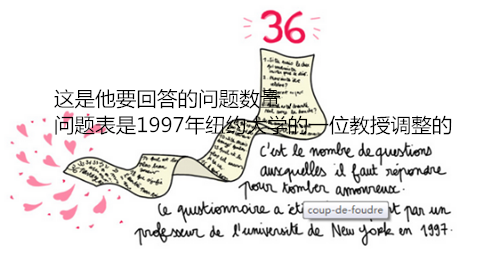 36
这是他要回答的问题数量
问题表是1997年纽约大学的一位教授调整的
C'est le nombre de questions
auxquelles il faut répondre
pour tomber amoureux.
Ce questionnaire a été par un
coup-de-foudre
professeur de l'université de New York en 1997.